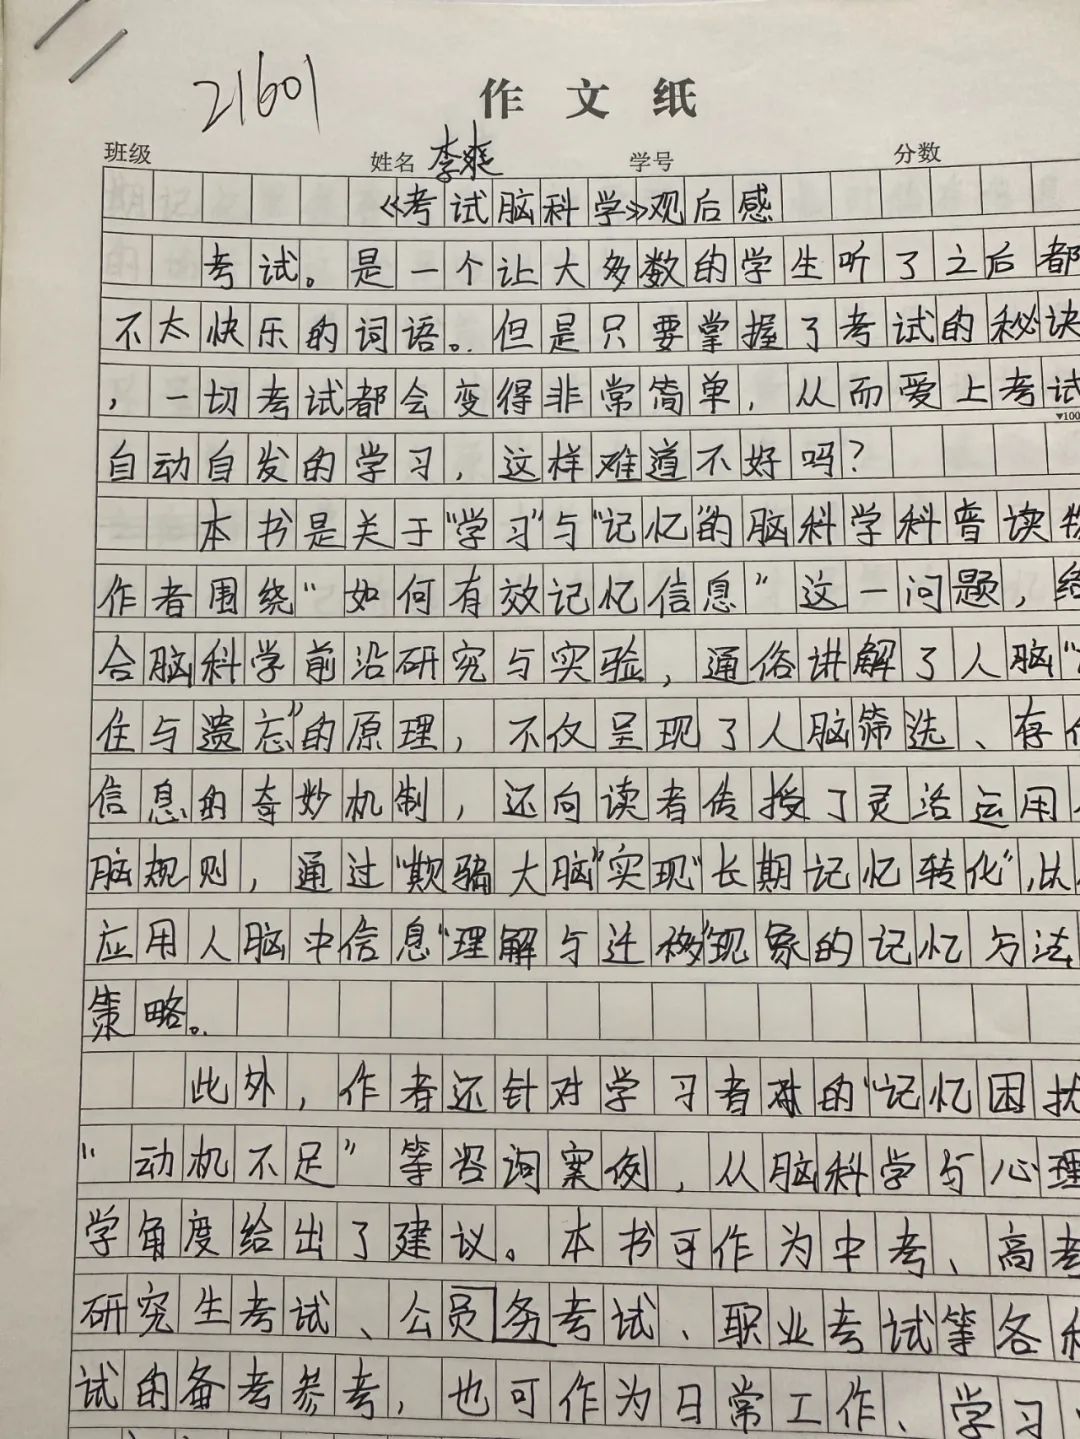 21601
作文纸
班级 姓名 李爽 学号 分数
《考试脑科学》观后感
考试。是一个让大多数的学生听了之后都
不太快乐的词语。但是只要掌握了考试的秘诀
，一切考试都会变得非常简单，从而爱上考试
▼100
自动自发的学习，这样难道不好吗？
本书是关于“学习”与“记忆”的脑科学科普读物
作者围绕“如何有效记忆信息”这一问题，结
合脑科学前沿研究与实验，通俗讲解了人脑“
住与遗忘”的原理，不仅呈现了人脑筛选、存
信息的奇妙机制，还向读者传授了灵活运用
脑规则，通过“欺骗大脑”实现“长期记忆转化”，
应用人脑中信息“理解与迁移”现象的记忆方法
策略。
此外，作者还针对学习者的“记忆困扰
“动机不足”等咨询案例，从脑科学与心理
学角度给出了建议。本书可作为中考、高考
研究生考试、公员务考试、职业考试等各
试的备考参考，也可作为日常工作、学习